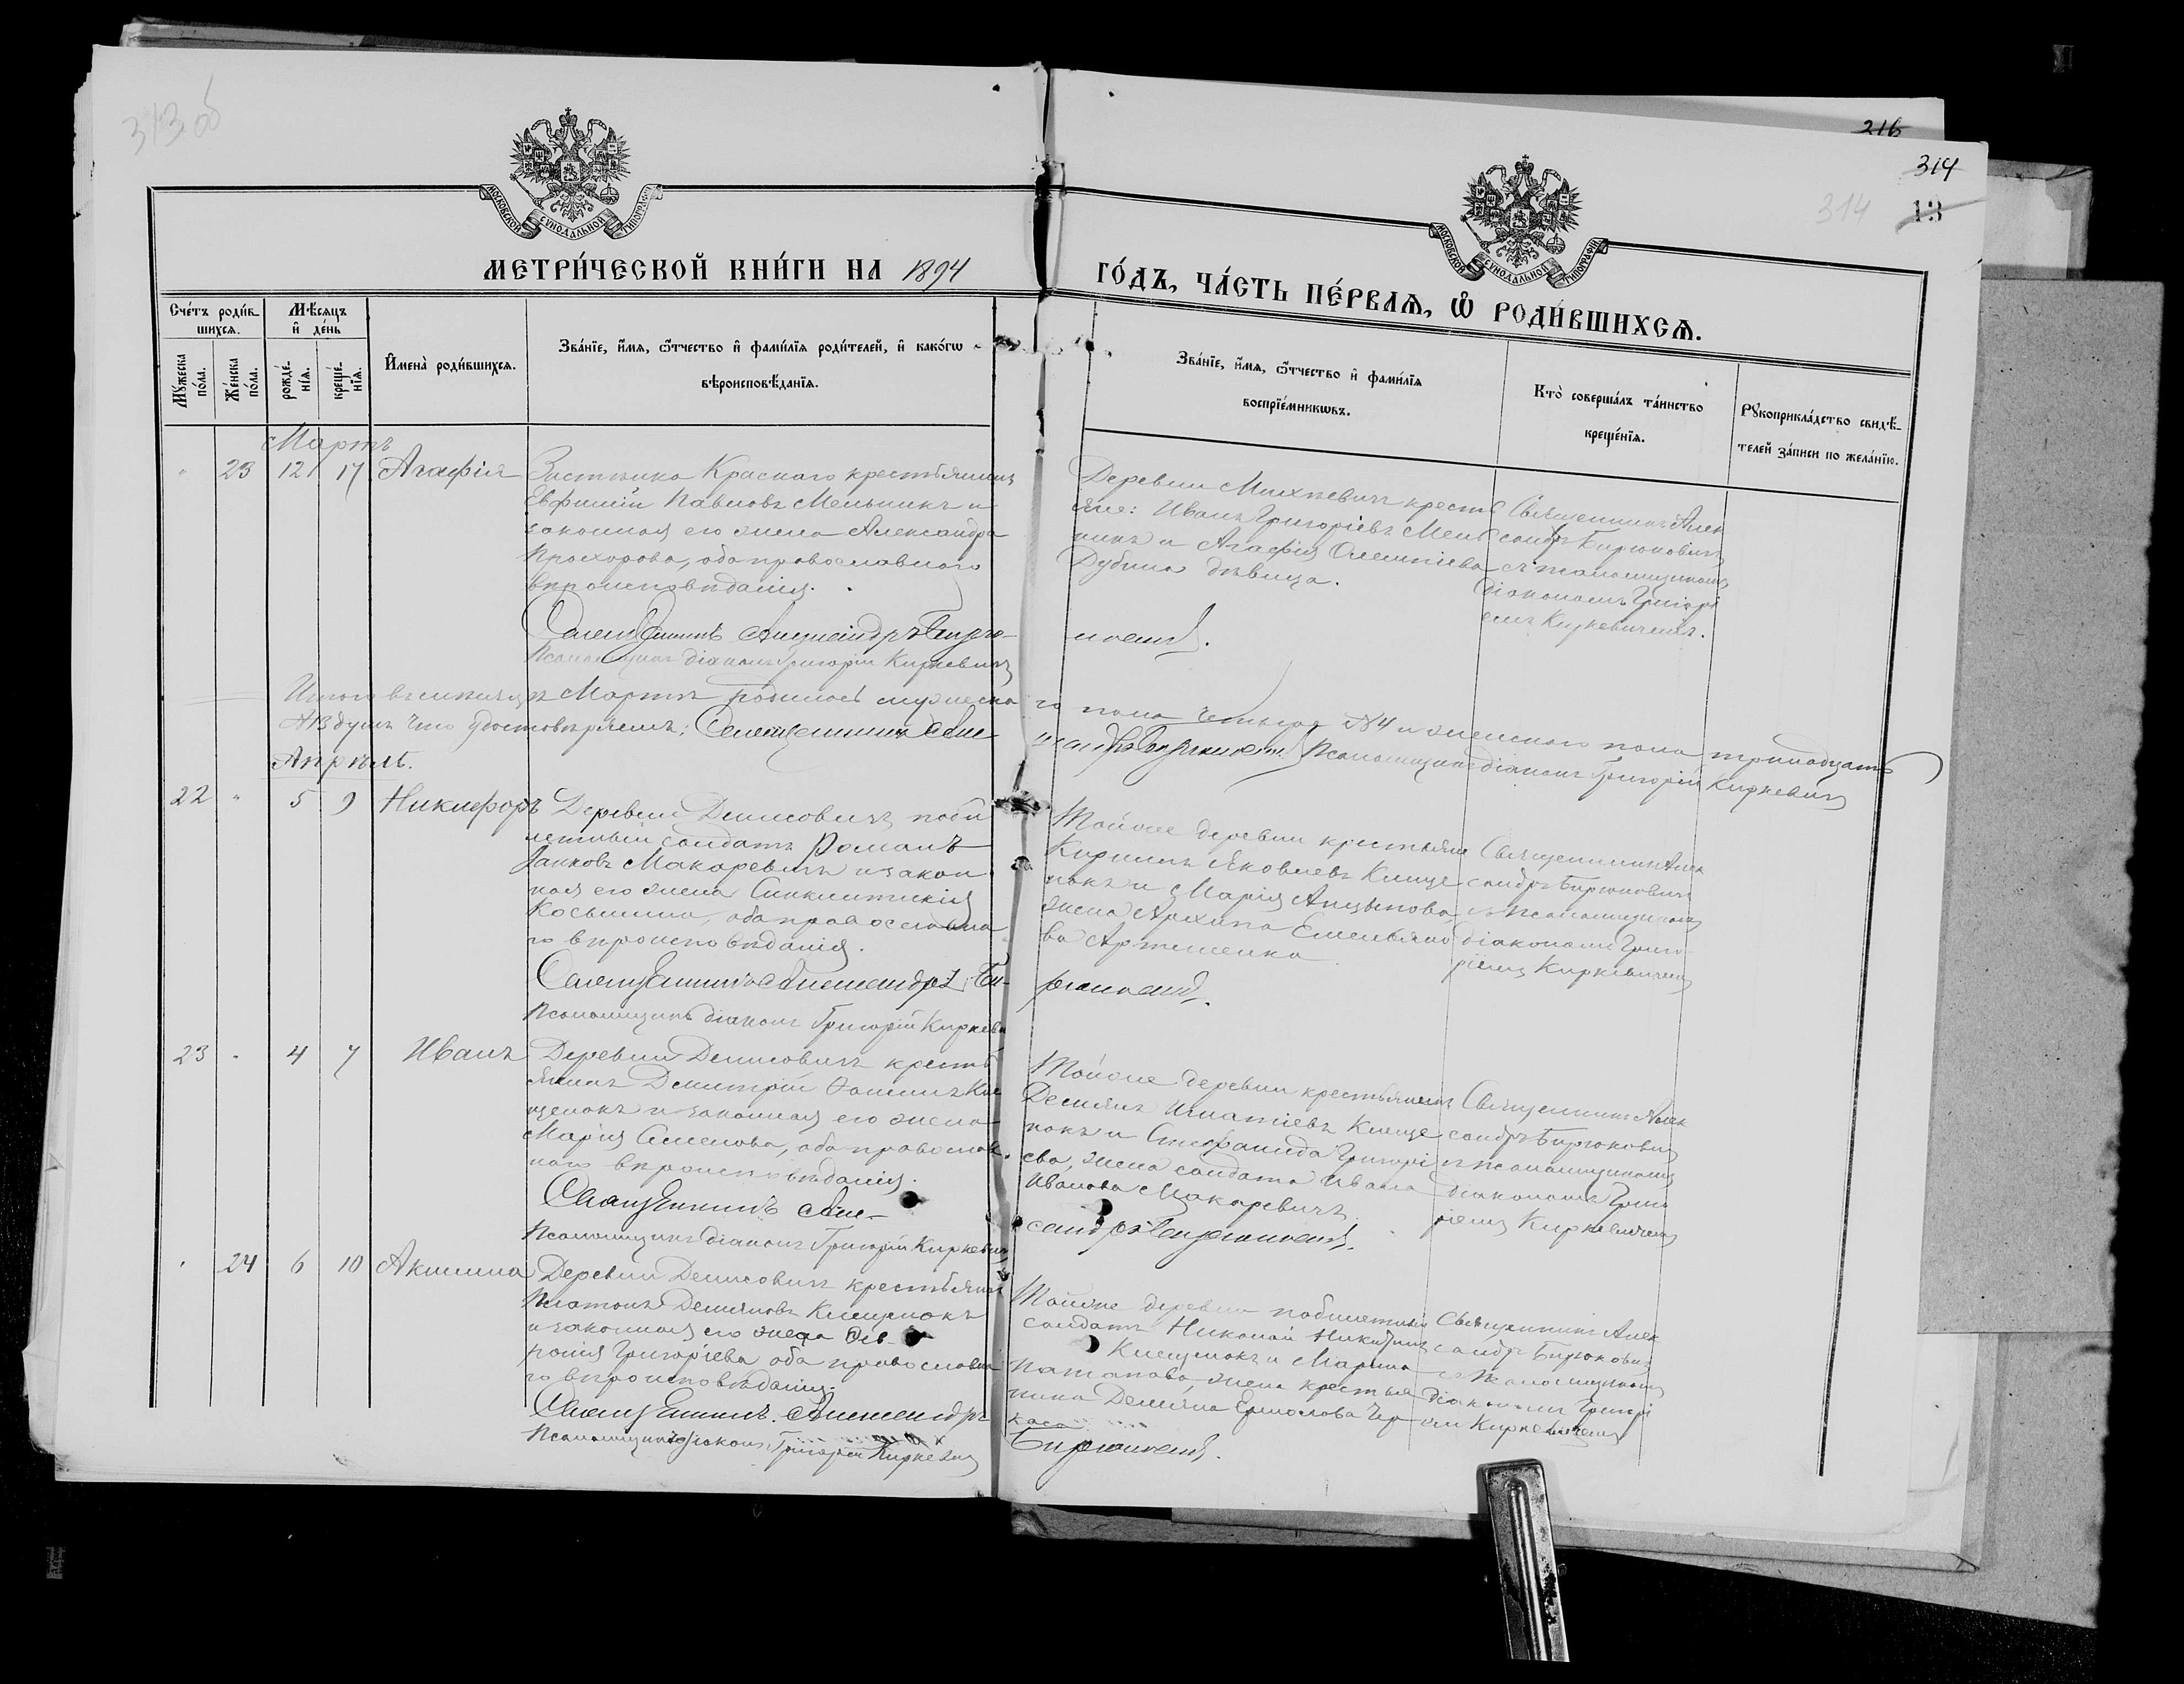 313 об
216
314
314
13
МОСКОВСКОЙ СѴНОДАЛЬНОЙ ТИПОГРАФІИ
МОСКОВСКОЙ СѴНОДАЛЬНОЙ ТИПОГРАФІИ
МЕТРИ́ЧЕСКОЙ КНИ́ГИ НА 1894
ГО́ДЪ, ЧА́СТЬ ПЕ́РВАѦ, Ѽ РОДИ́ВШИХСѦ.
Сче́тъ роди́в-
шихсѧ.
Мѣ́сѧцъ
и҆ де́нь
Мꙋ́жеска по́ла.
Же́нска по́ла.
рожде́-
нїѧ.
креще́-
нїѧ.
И҆мена̀ роди́вшихсѧ.
Зва́нїе, и҆́мѧ, ѻ҆́тчество и҆ фами́лїѧ роди́телей, и҆ како́гѡ
вѣроисповѣ́данїѧ.
Зва́нїе, и҆́мѧ, ѻ҆́тчество и҆ фами́лїѧ
воспрїе́мникѡвъ.
Кто̀ соверша́лъ та́инство
креще́нїѧ.
Рꙋкоприкла́дство свидѣ́-
телей за́писи по жела́нїю.
Мартъ
" 23 12 17 Агафія
Застѣнка Краснаго крестьянинъ
Евфимій Павловъ Мельникъ и
законная его жена Александра
Прохорова, оба православнаго
вѣроисповѣданія.
Священникъ Александръ Бирю-
Псаломщикъ діаконъ Григорій Киркевичъ
Деревни Михневичъ кресть
яне: Иванъ Григорієвъ Мель
никъ и Агафія
Дубина дѣвица.
ковичъ.
Священникъ Алек
сандръ Бирюковичъ
съ псаломщикомъ
діакономъ Григорі
емъ Киркевичемъ.
Итого въ мѣсяцѣ Мартѣ родилось мужеска
го пола четыре №4 и женскаго пола тринадцать
№13 душъ что удостовѣряемъ: Священникъ Алек
сандръ Бирюковичъ Псаломщикъ діаконъ Григорій Киркевичъ
Апрѣль.
22 " 5 9 Никифоръ
Деревни Денисовичъ поби
летный солдатъ Романъ
Макаревичъ и закон
ная его жена Синклитикія
Косьмина, оба православна
го вѣроисповѣданія.
Священникъ Александръ Би-
Псаломщикъ діаконъ Григорій Киркеви
Тойже деревни крестьяне
Кириллъ Яковлевъ Клеще
нокъ и Марія
жена Архипа Емельяно
ва Артеменка
рюковичъ.
Священникъ Алек
сандръ Бирюковичъ
съ псаломщикомъ
діакономъ Григо
ріемъ Киркевичемъ
23 " 4 7 Иванъ
Деревни Денисовичъ кресть
янинъ Димитрій Ѳоминъ Кле
щенокъ и законная его жена
Марія Семенова, оба православ
наго вѣроисповѣданія.
Священникъ Алек-
Псаломщикъ діаконъ Григорій Киркевичъ
Тойже деревни крестьянинъ
Деміянъ Игнатіевъ Клеще
нокъ и Стефанида Григорі
ева, жена солдата Ивана
Иванова Макаревича,
сандръ Бирюковичъ.
Священникъ Алек
сандръ Бирюковичъ
съ псаломщикомъ
діакономъ Григо
ріемъ Киркевичемъ
" 24 6 10 Акилина
Деревни Денисовичъ крестьянинъ
Платонъ Деміяновъ Клещенокъ
и законная его жена Ѳев-
ронія Григорієва оба православна
го вѣроисповѣданія.
Священникъ Александръ
Псаломщикъ діаконъ Григорій Киркевичъ
Тойже деревни побилетный
солдатъ Николай Никитинъ
Клещенокъ и Марина
Потапова, жена крестья
нина Деміяна Ермолова Чер
каса
Бирюковичъ.
Священникъ Алек
сандръ Бирюковичъ
съ псаломщикомъ
діакономъ Григорі
емъ Киркевичемъ